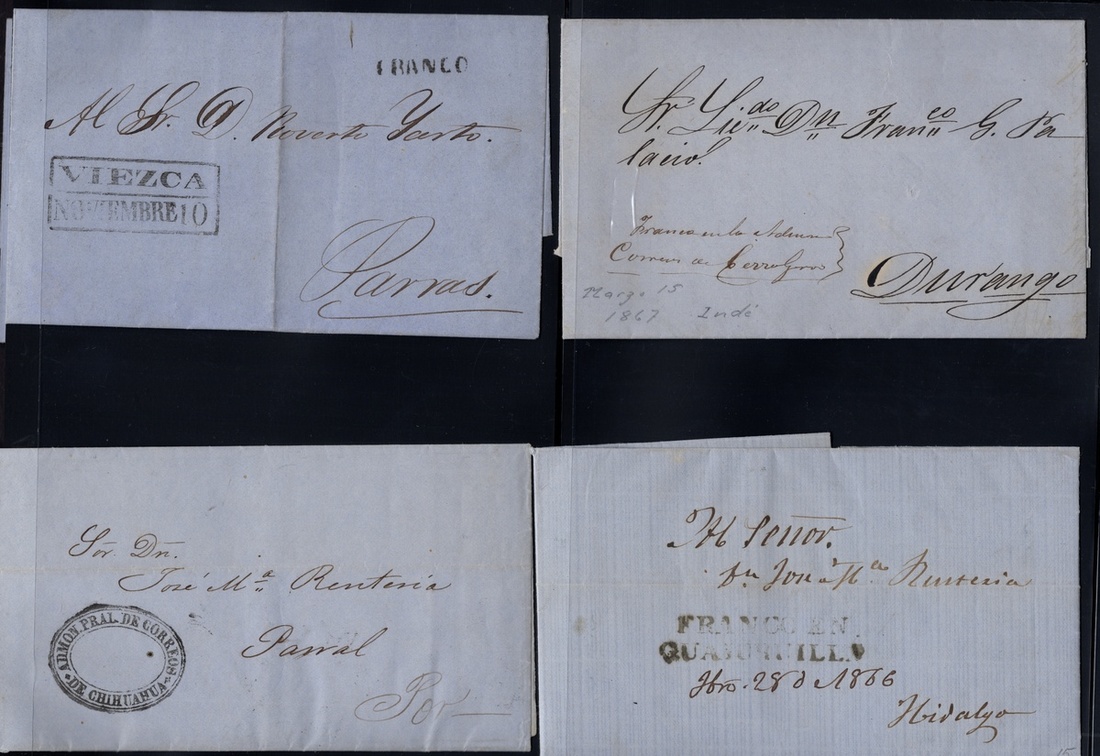 FRANCO
Al Sr. D. Roverto Yarto.
VIEZCA
NOVIEMBRE 10
Parras.
Sr. Lic.do Dn Fran.co G. Pa
lacio.
Franca en la Admon
Correos de Cerro Gordo
Durango
Marzo 15
1867 Indé
Sor. Dn.
José Ma. Renteria
ADMON. PRAL. DE CORREOS
DE CHIHUAHUA
Parral
Al Señor.
Dn José Ma. Renteria
FRANCO EN
GUAJUQUILLA
28 de 1866
Hidalgo
15